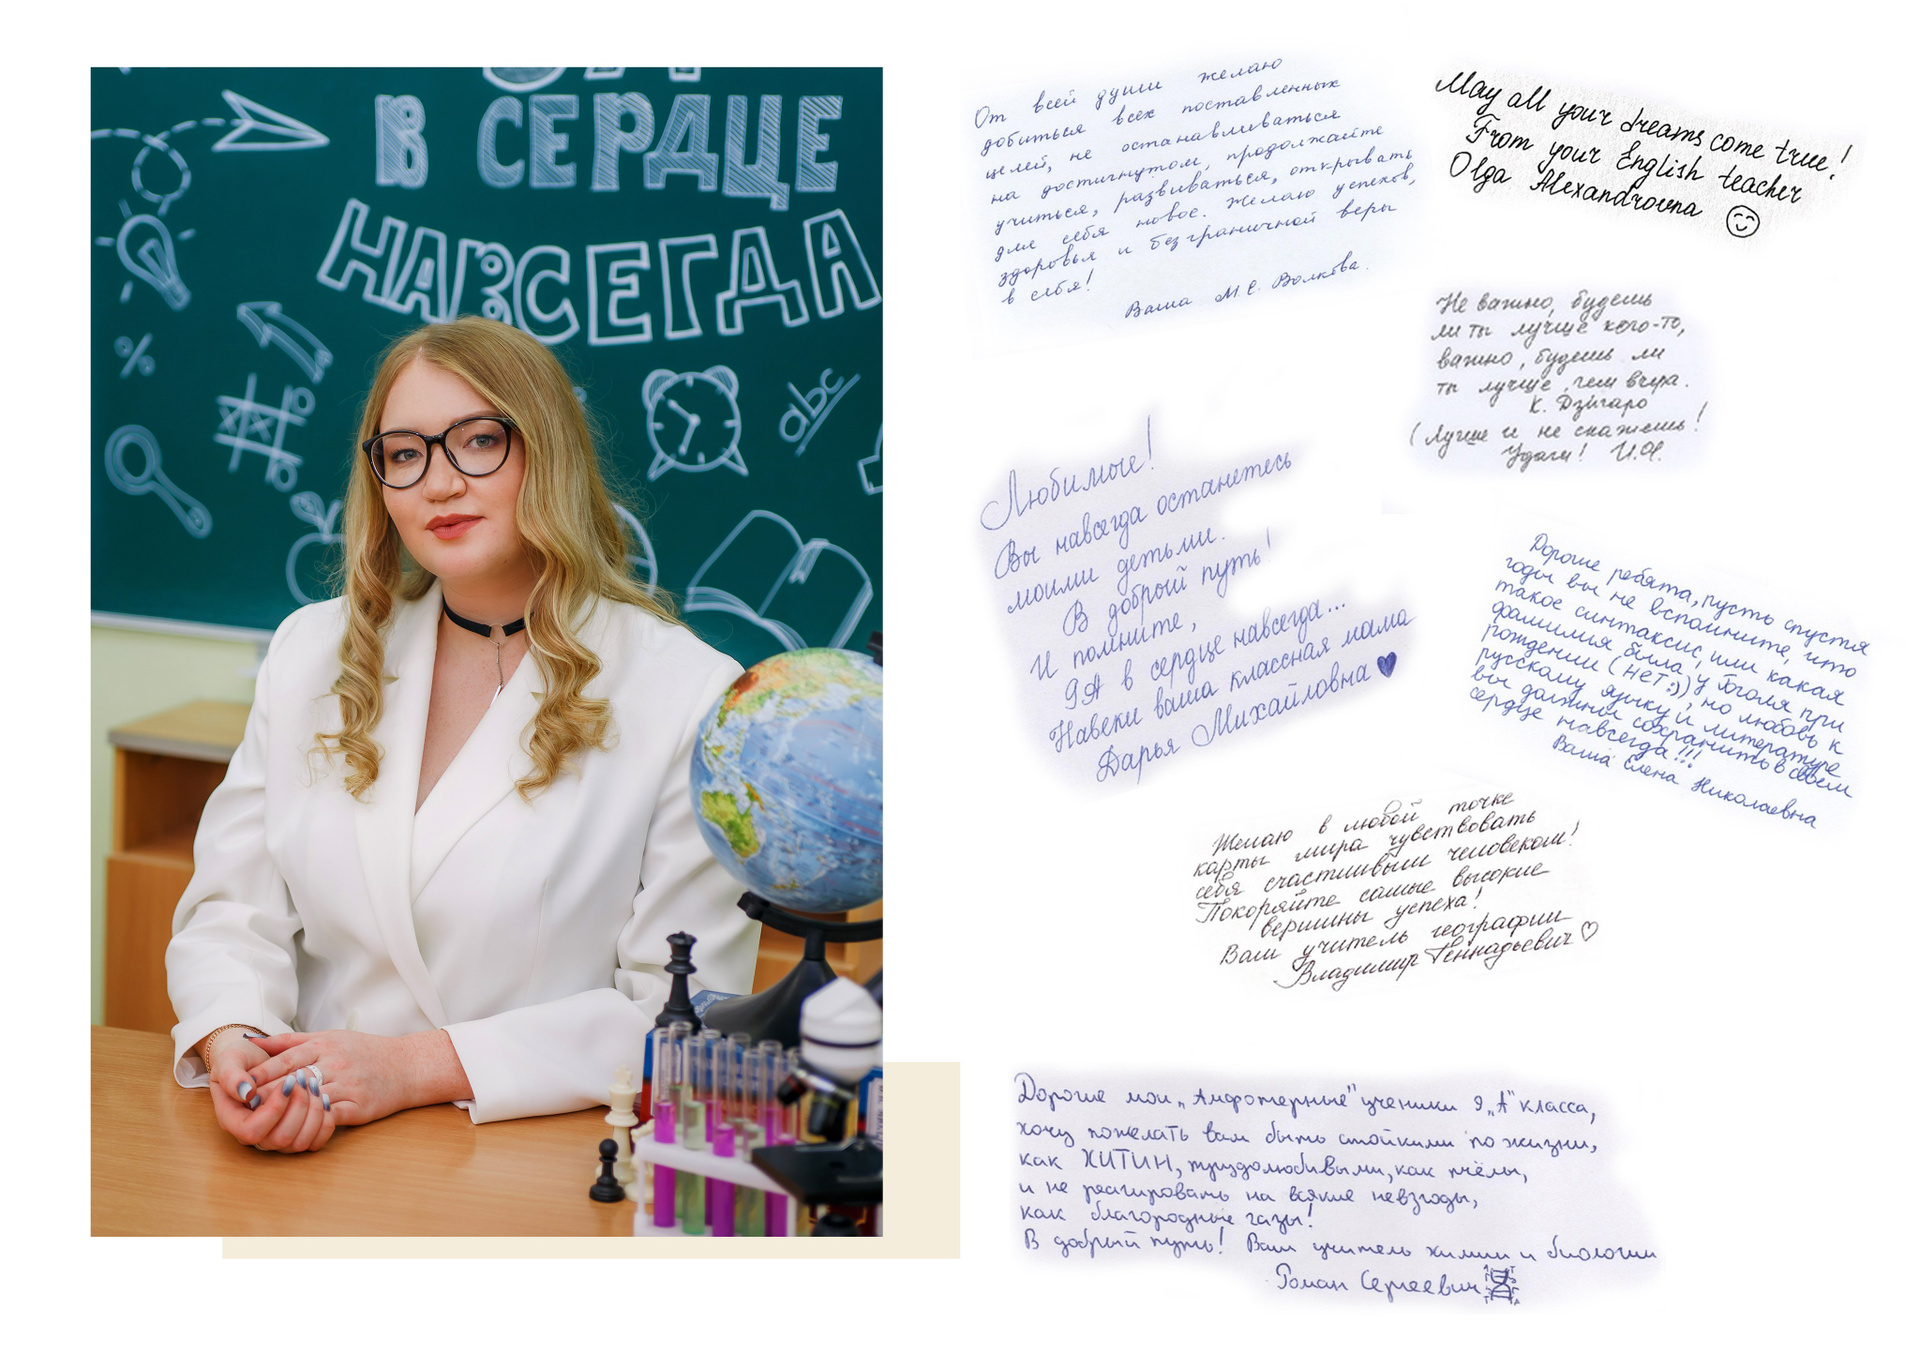 В СЕРДЦЕ
НАВСЕГДА
%
abc
От всей души желаю
добиться всех поставленных
целей, не останавливаться
на достигнутом, продолжайте
учиться, развиваться, открывать
для себя новое. Желаю успехов,
здоровья и безграничной веры
в себя!
Ваша М.С. Волкова.
May all your dreams come true!
From your English teacher
Olga Alexandrovna
Не важно, будешь
ли ты лучше кого-то,
важно, будешь ли
ты лучше, чем вчера.
К. Дзигаро
(Лучше и не скажешь!
Удачи! И.Я.
Любимые!
Вы навсегда останетесь
моими детьми.
В добрый путь!
И помните,
9А в сердце навсегда...
Навеки ваша классная мама
Дарья Михайловна
Дорогие ребята, пусть спустя
годы вы не вспомните, что
такое синтаксис, или какая
фамилия была у Гоголя при
рождении (НЕТ:)), но любовь к
русскому языку и литературе
вы должны сохранить в своём
сердце навсегда!!!
Ваша Елена Николаевна
Желаю в любой точке
карты мира чувствовать
себя счастливым человеком!
Покоряйте самые высокие
вершины успеха!
Ваш учитель географии
Владимир Геннадьевич
Дорогие мои „Амфотерные" ученики 9„А" класса,
хочу пожелать вам быть стойкими по жизни,
как ХИТИН, трудолюбивыми, как пчёлы,
и не реагировать на всякие невзгоды,
как благородные газы!
В добрый путь! Ваш учитель химии и биологии
Роман Сергеевич